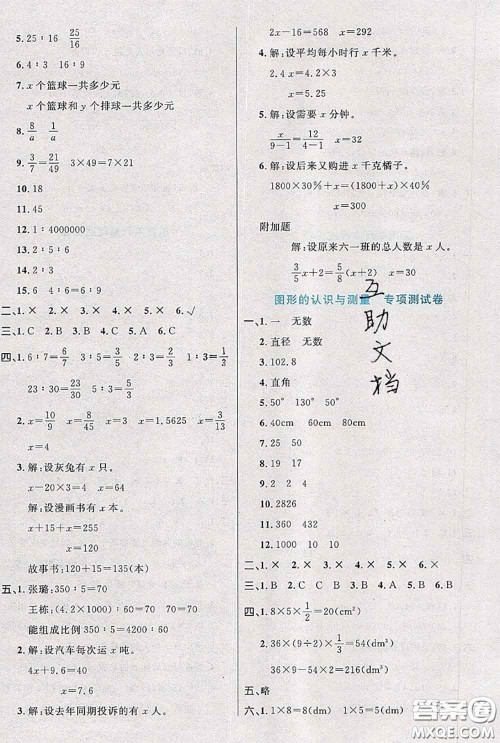 5. 25∶16　25/16
6. 4∶3　16∶9
7. x个篮球一共多少元
x个篮球和y个排球一共多少元
8. 8/a　1/a
9. 3/7=21/49　3×49=7×21
10. 18
11. 45
12. 1∶4000000
14. 2∶5
15. 6∶9=4∶6
二、1. × 2. × 3. × 4. × 5. × 6. √
三、1. C 2. B 3. A 4. A 5. C
四、1. 6∶7=6/7　3∶2=3/2　1∶3=1/3
23∶30=23/30　5∶3=5/3
2. x=10/9　x=8/9　x=1.5625　x=3/13
x=4
3. 解:设灰兔有x只。
x-20×3=4　x=64
解:设漫画书有x本。
x+15+x=255
x=120
故事书:120+15=135(本)
五、1. 张璐:350∶5=70
王栋:(4.2×1000)∶60=70
能组成比例　350∶5=(4.2×1000)∶60
2. 解:设汽车每次运x吨。
4x+9.6=40
x=7.6
3. 解:设去年同期投诉的有x人。
2x-16=568　x=292
4. 解:设平均每小时行x千米。
2.4x=4.2×3
x=5.25
5. 解:设需要x分钟。
x/(9-1)=12/(4-1)　x=32
6. 解:设后来又购进x千克橘子。
1800×30%=(1800+x)×40%-x
x=300
附加题
解:设原来六一班的总人数是x人。
3/5x+2=5/8(x+2)　x=30
图形的认识与测量　专项测试卷
互助文档
一、1. 一　无数
2. 直径　无数
3. 102.8
4. 直角
5. 50° 130° 50°
6. 40cm　60cm　80cm
7. 25　30
8. 12　17
9. 2　2　4
10. 2826
12. 1000　10
二、1. × 2. × 3. × 4. × 5. × 6. ×
三、1. D 2. B 3. C B 4. B 5. B 6. C
四、1. 8×5×1/2=20(dm²)
2. 36×(9÷2)×1/3=54(dm³)
36×9-54=270(dm³)
五、略
六、1. 1×8=8(dm)　1×5=5(dm)
答案圈
MXQE.COM